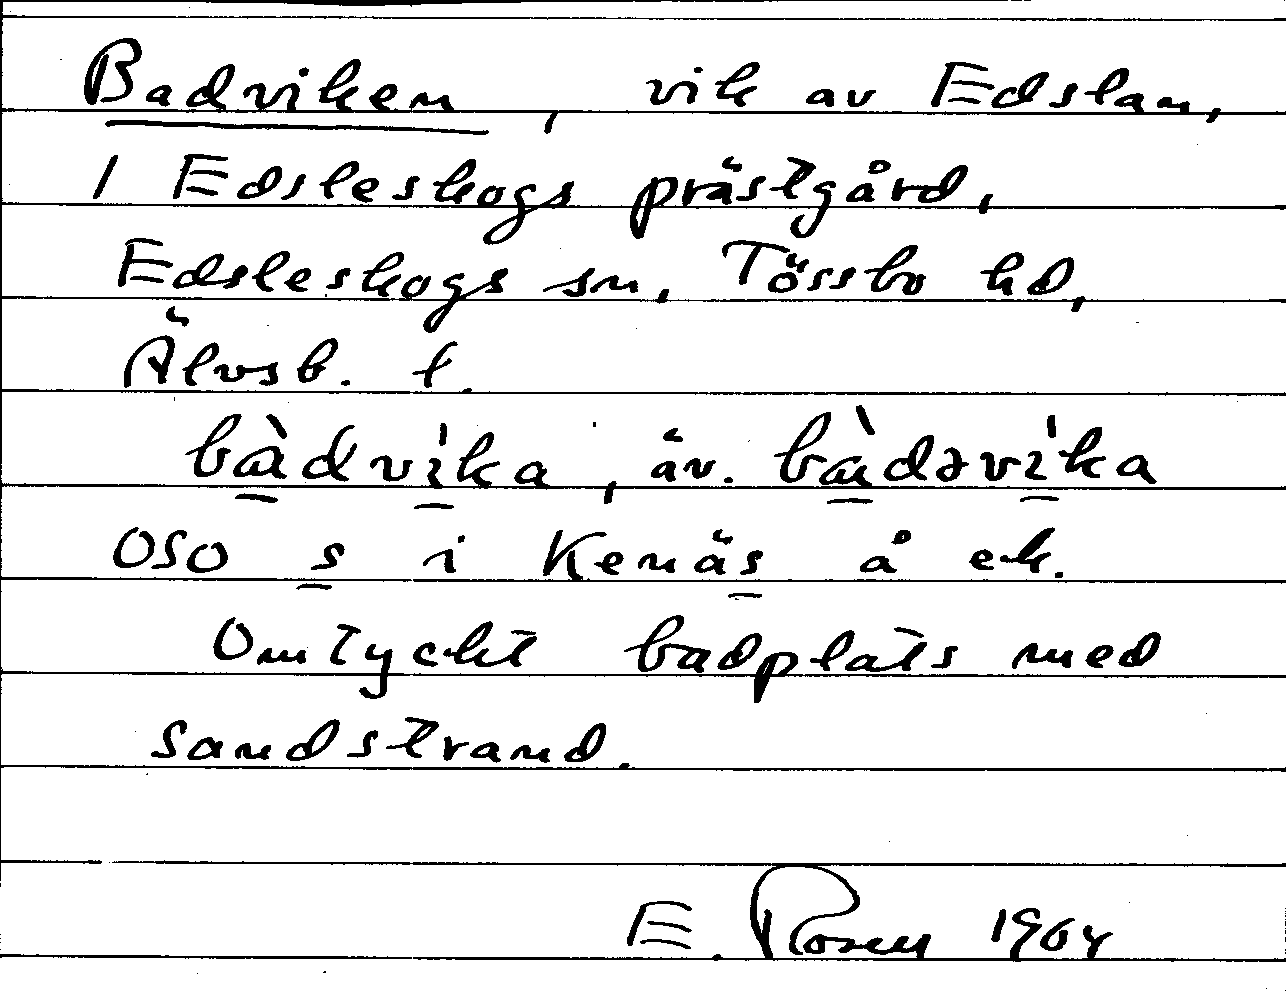 Badviken, vik av Edslan,
i Edsleskogs prästgård,
Edsleskogs sn, Tössbo hd,
Älvsb. l.
bàdvi̍ka, äv. bàdəvi̍ka
OSO s i Kenäs å ek.
Omtyckt badplats med
sandstrand.
E. Rosen 1964